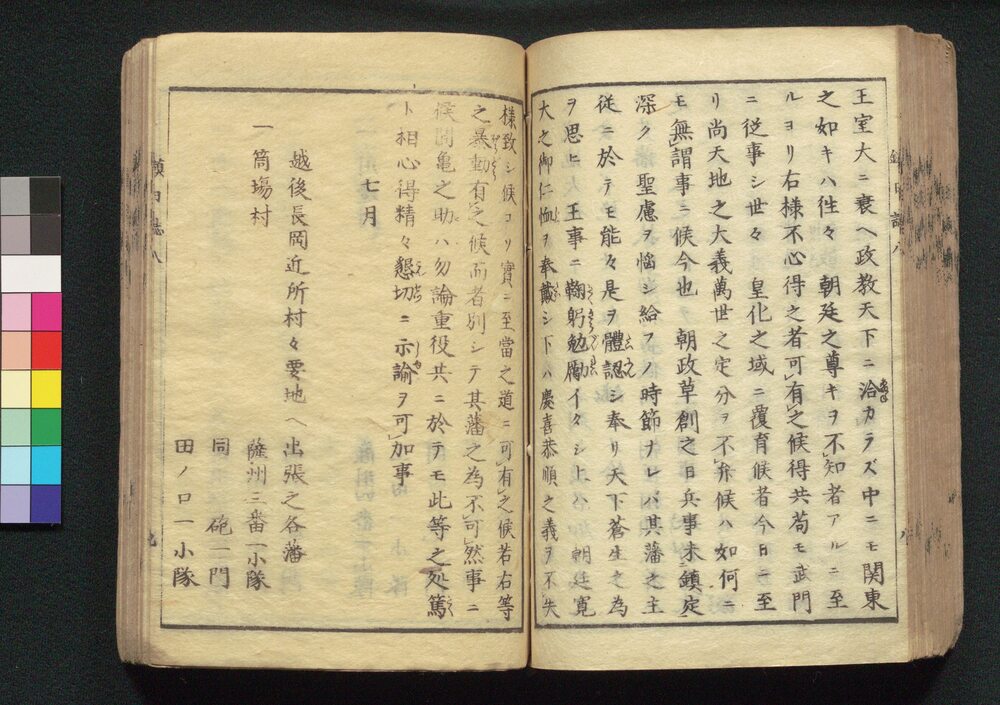 王室大ニ衰ヘ政教天下ニ洽カラズ中ニモ関東
之如キハ徃々　朝廷之尊キヲ不知者アルニ至
ルヨリ右様不心得之者可有之候得共苟モ武門
ニ従事シ世々　皇化之域ニ覆育候者今日ニ至
リ尚天地之大義萬世之定分ヲ不弁候ハ如何ニ
モ無謂事ニ候今也　朝政草創之日兵事未鎮定
深ク聖慮ヲ悩シ給フノ時節ナレバ其藩之主
従ニ於テモ能々是ヲ體認シ奉リ天下蒼生之為
ヲ思ヒ　王事ニ鞠躬勉勵イタシ上ハ　朝廷寛
大之御仁恤ヲ奉戴シ下ハ慶喜恭順之義ヲ不失
様致シ候コソ實ニ至當之道ニ可有之候若右等
之暴動有之候而者別シテ其藩之為不可然事ニ
候間亀之助ハ勿論重役共ニ於テモ此等之処篤
ト相心得精々懇切ニ示諭ヲ可加事
七月
越後長岡近所村々要地ヘ出張之各藩
一　筒場村
薩州三番一小隊
同　砲二門
田ノ口一小隊